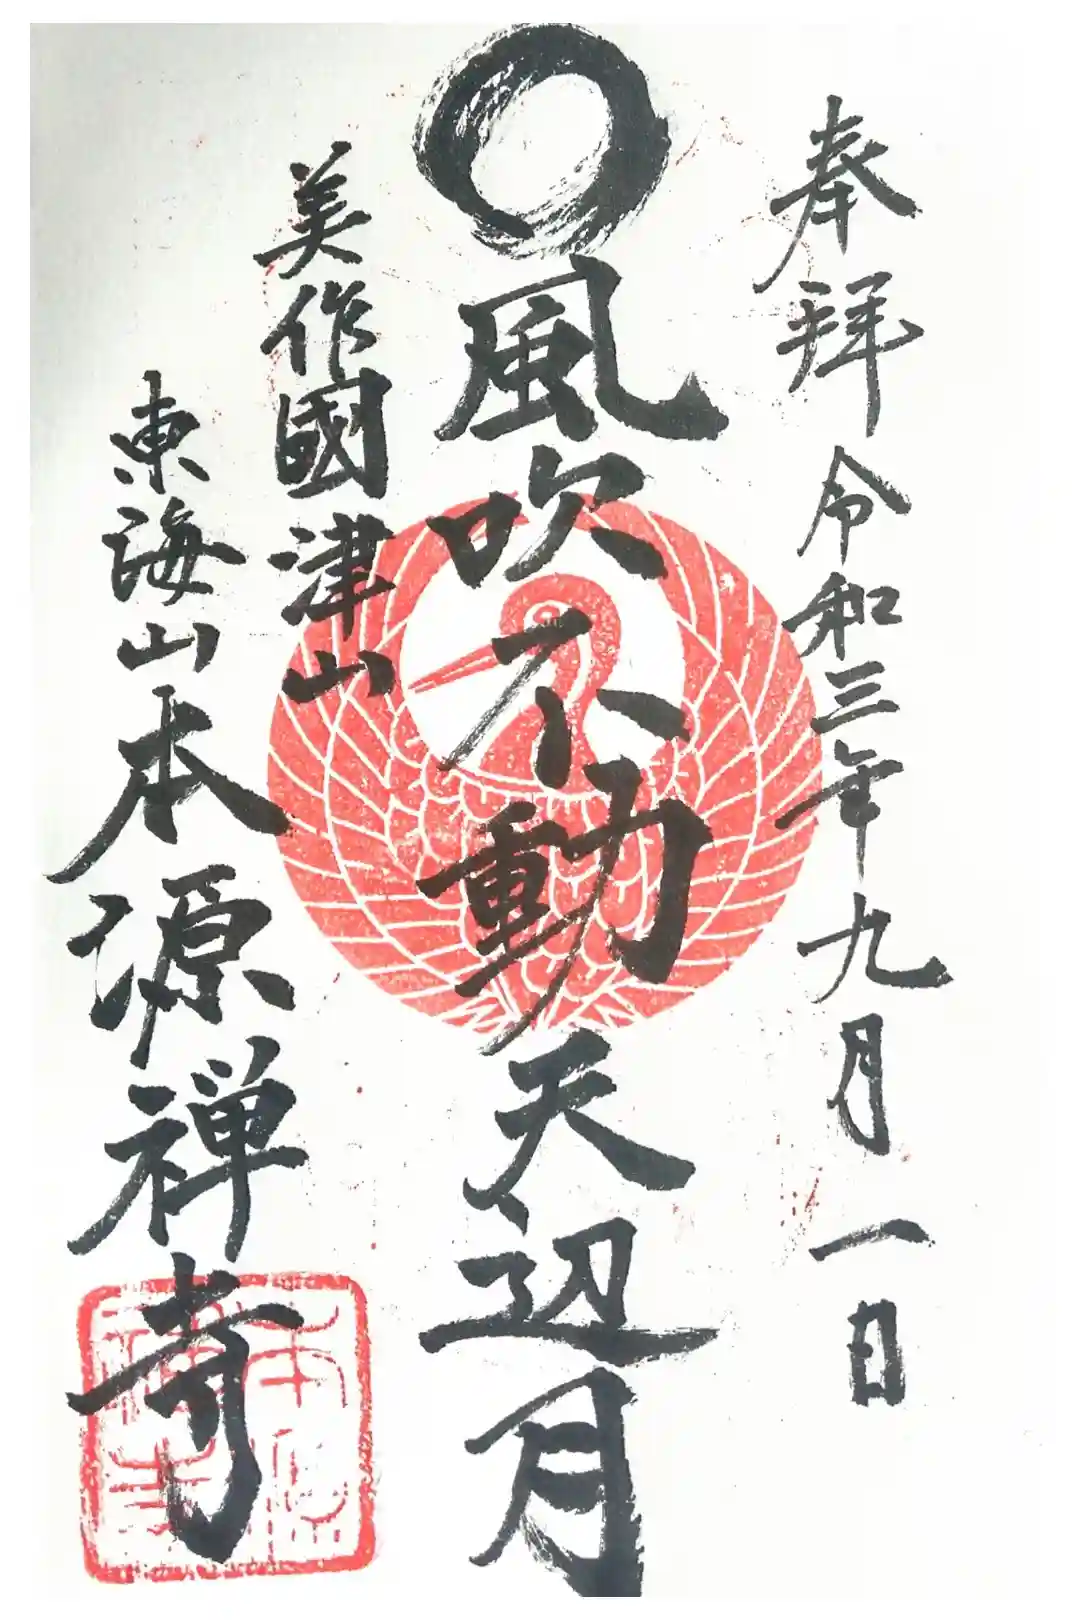 奉拝 令和三年九月一日
風吹不動天辺月
美作國津山
東海山本源禅寺